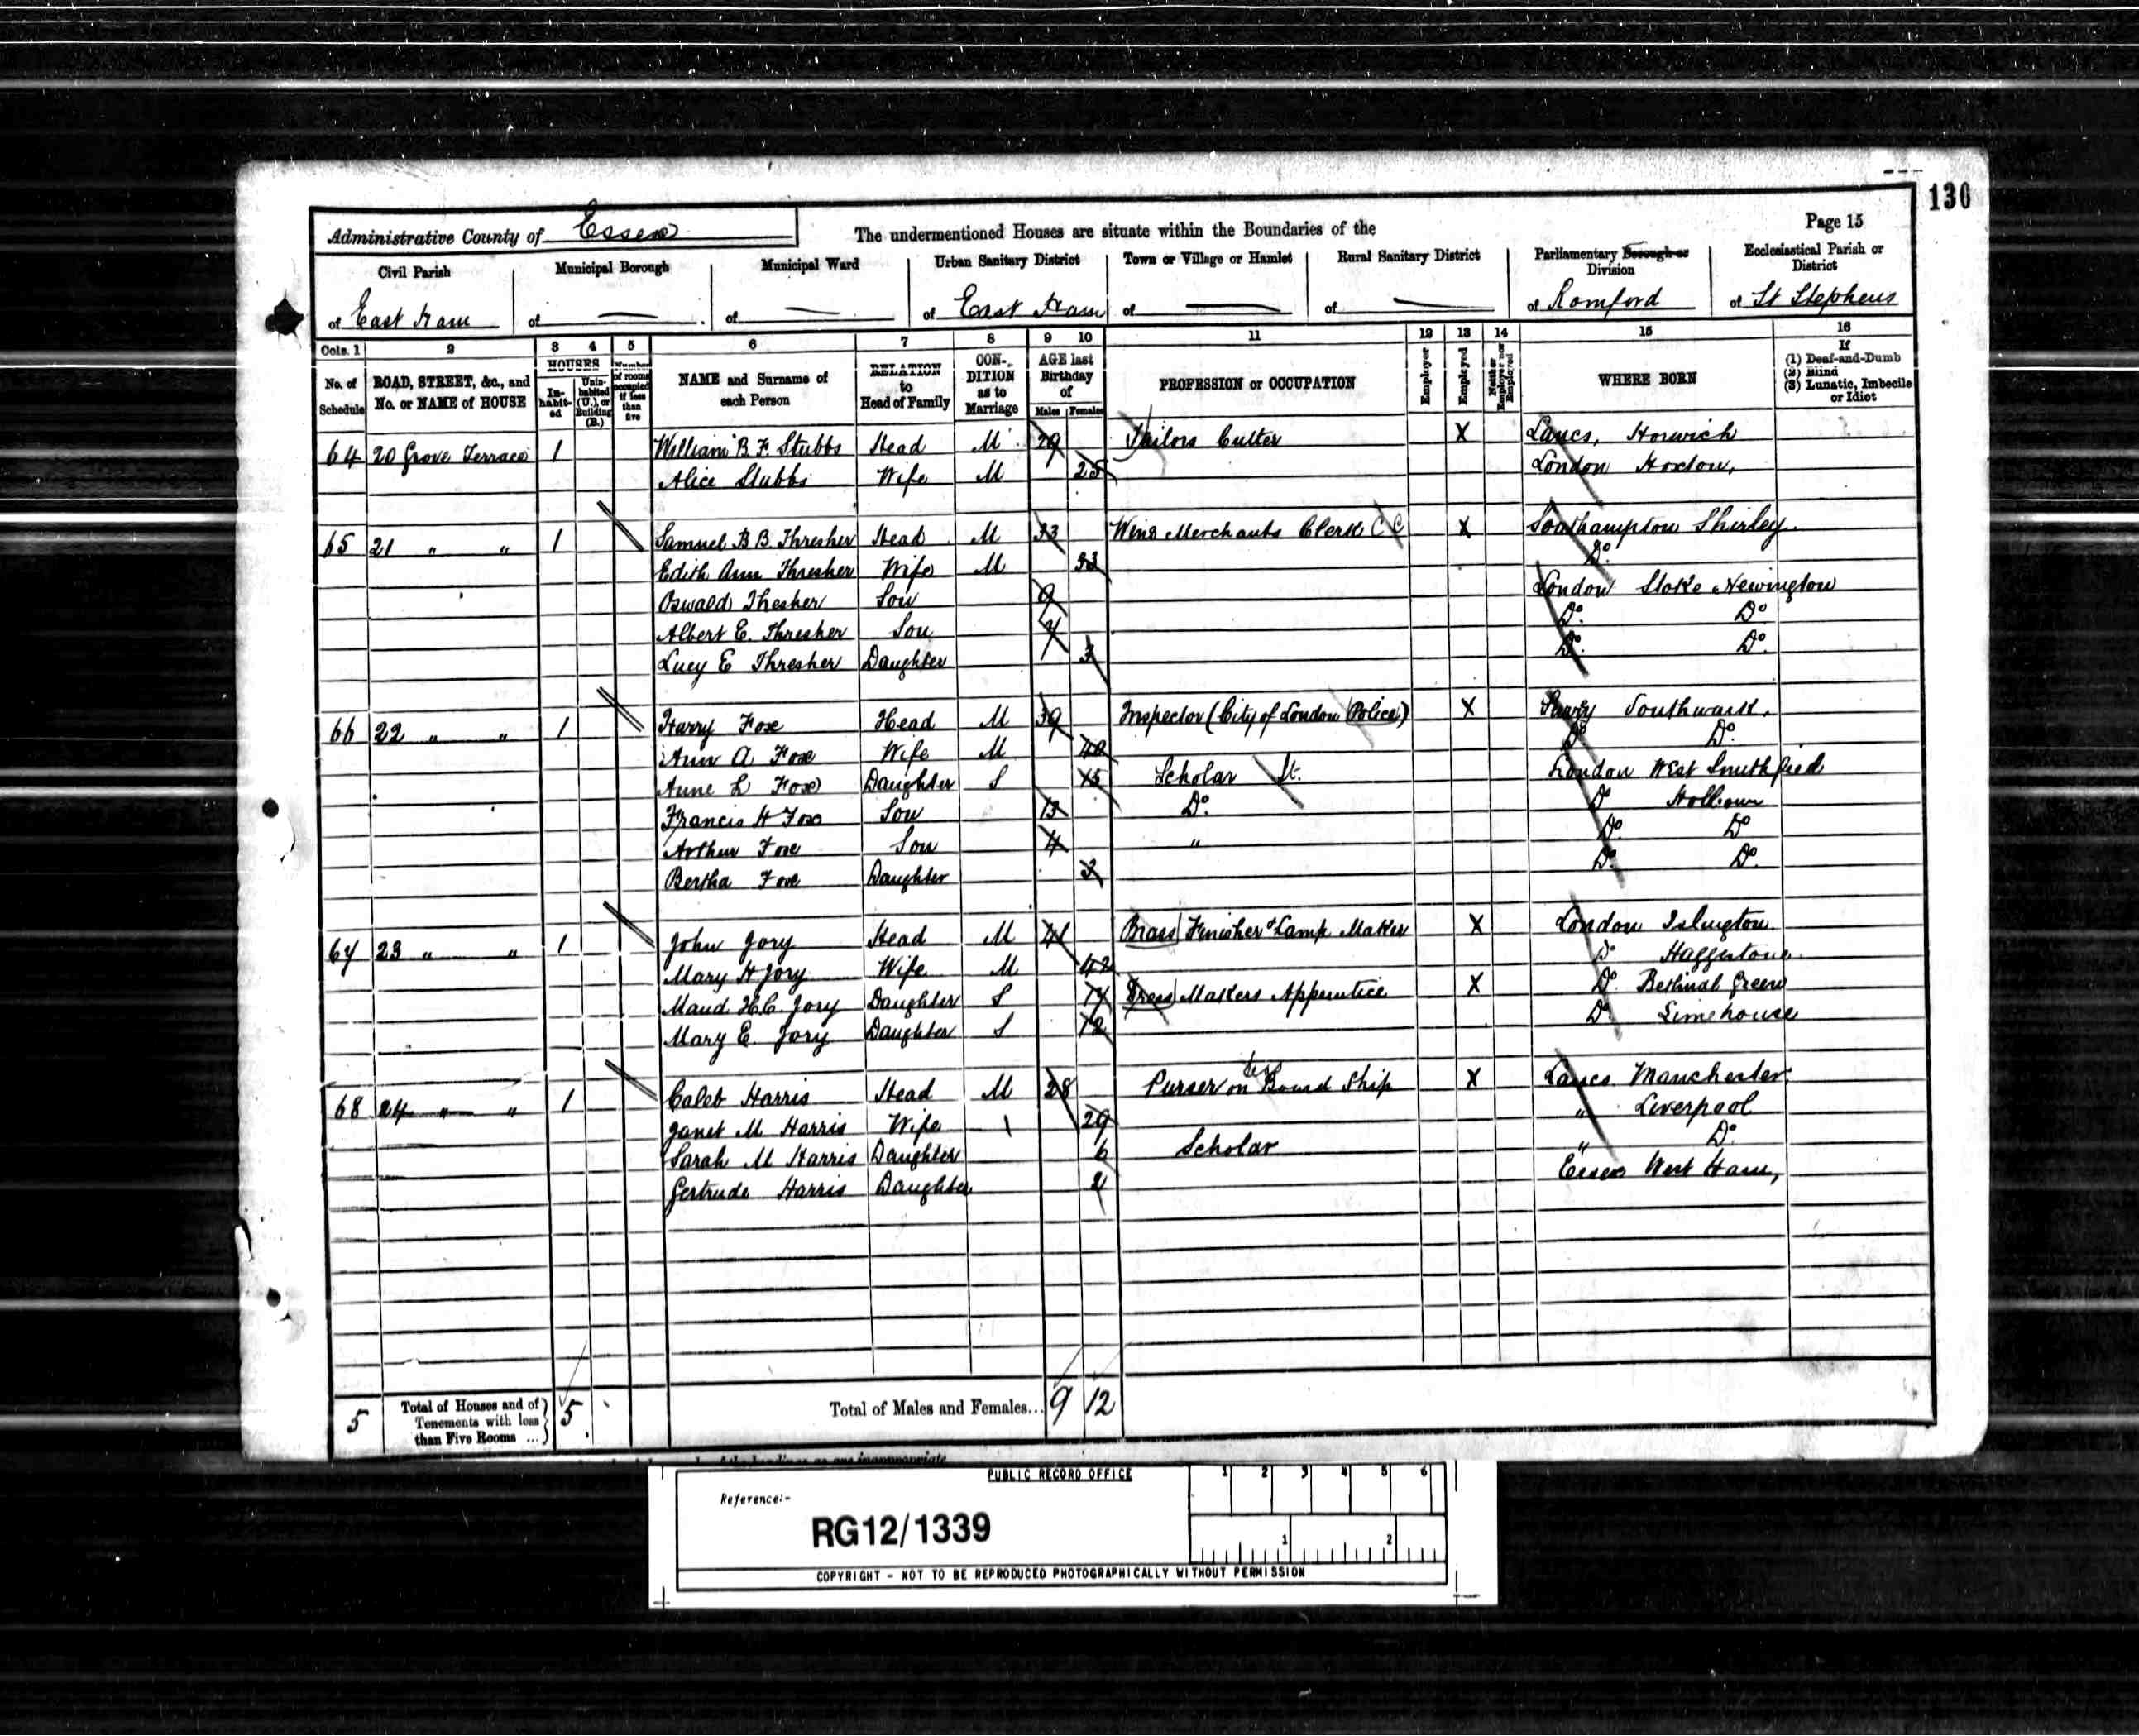 130
Page 15
Administrative County of Essex
The undermentioned Houses are situate within the Boundaries of the
Civil Parish of East Ham
Municipal Borough of —
Municipal Ward of —
Urban Sanitary District of East Ham
Town or Village or Hamlet of —
Rural Sanitary District of —
Parliamentary Borough or Division of Romford
Ecclesiastical Parish or District of St Stephens
Cols. 1 2 3 4 5 6 7 8 9 10 11 12 13 14 15 16
No. of Schedule
ROAD, STREET, &c., and No. or NAME of HOUSE
HOUSES
In-habit-ed
Unin-habited (U.), or Building (B.)
Number of rooms occupied if less than five
NAME and Surname of each Person
RELATION to Head of Family
CON-DITION as to Marriage
AGE last Birthday of
Males Females
PROFESSION or OCCUPATION
Employer
Employed
Neither Employer nor Employed
WHERE BORN
If (1) Deaf-and-Dumb (2) Blind (3) Lunatic, Imbecile or Idiot
64 20 Grove Terrace 1 William B. F. Stubbs Head M 29 Tailors Cutter X Lancs, Horwich
Alice Stubbs Wife M 25 London Hoxton,
65 21 " " 1 Samuel B B. Thresher Head M 33 Wine Merchants Clerk C C X Southampton Shirley.
Edith Ann Thresher Wife M 33 Do.
Oswald Thesher Son 9 London Stoke Newington
Albert E. Thresher Son 7 Do. Do.
Lucy E Thresher Daughter 3 Do. Do.
66 22 " " 1 Harry Fox Head M 39 Inspector (City of London Police) X Surry Southwark.
Ann A. Fox Wife M 40 Do Do.
Anne L Fox Daughter S 15 Scholar St. London West Smithfield
Francis H Fox Son 13 Do. Do Holborn
Arthur Fox Son 4 " Do. Do
Bertha Fox Daughter 3 Do. Do.
67 23 " " 1 John Jory Head M 41 Brass Finisher & Lamp Maker X London Islington
Mary H Jory Wife M 42 Do Haggerstone.
Maud H.C. Jory Daughter S 17 Dress Makers Apprentice X Do. Bethnal Green
Mary E. Jory Daughter S 12 Do. Limehouse
68 24 " " 1 Caleb Harris Head M 28 Purser on Board Ship X Lancs. Manchester.
Janet M Harris Wife \ 29 " Liverpool
Sarah M Harris Daughter 6 Scholar " Do.
Gertrude Harris Daughter 2 Essex West Ham,
5 Total of Houses and of Tenements with less than Five Rooms ... 5
Total of Males and Females... 9 12
PUBLIC RECORD OFFICE
1 2 3 4 5 6
Reference:-
RG12/1339
1 2
COPYRIGHT - NOT TO BE REPRODUCED PHOTOGRAPHICALLY WITHOUT PERMISSION